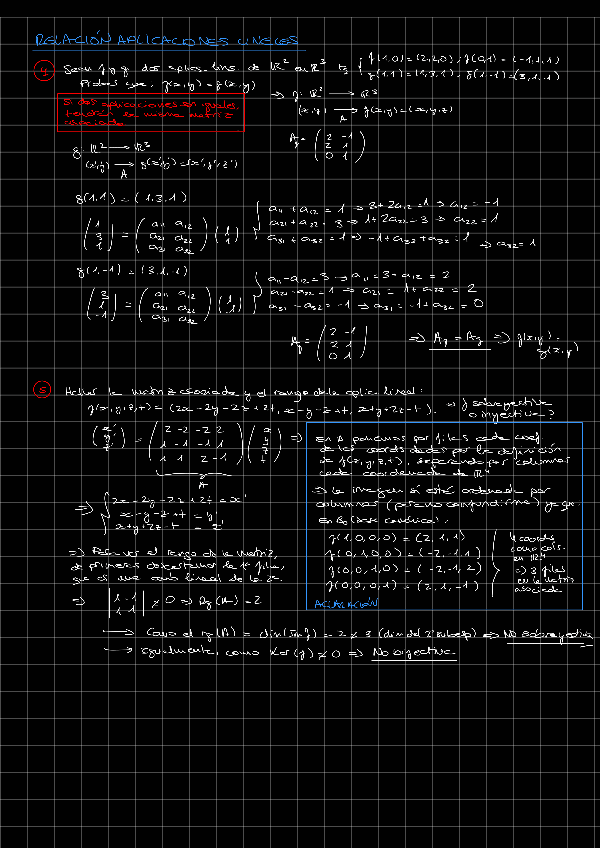 RELACIÓN APLICACIONES LINEALES
④ Sean f y g dos aplics. lins. de ℝ² en ℝ³ tq { f(1,0)=(2,2,0), f(0,1)=(-1,1,1)
g(1,1)=(1,3,1), g(1,-1)=(3,1,-1)
Probar que f(x,y)=g(x,y)
Si dos aplicaciones son iguales
tendrán la misma matriz
asociada
⇒ f: ℝ² → ℝ³
(x,y) → f(x,y)=(x,y,z)
A
g: ℝ² → ℝ³
(x',y') → g(x',y')=(x',y',z')
A
A_f = ( 2 -1
2 1
0 1 )
g(1,1) = (1,3,1)
( 1 3 1 ) = ( a11 a12
a21 a22
a31 a32 ) ( 1 1 )
{ a11 + a12 = 1 ⇒ 3+2a12 = 1 ⇒ a12 = -1
a21 + a22 = 3 ⇒ 1+2a22 = 3 ⇒ a22 = 1
a31 + a32 = 1 ⇒ -1+a32+a32 = 1 ⇒ a32 = 1
g(1,-1) = (3,1,-1)
( 3 1 -1 ) = ( a11 a12
a21 a22
a31 a32 ) ( 1 -1 )
{ a11 - a12 = 3 ⇒ a11 = 3 + a12 = 2
a21 - a22 = 1 ⇒ a21 = 1 + a22 = 2
a31 - a32 = -1 ⇒ a31 = -1 + a32 = 0
A_g = ( 2 -1
2 1
0 1 ) ⇒ A_f = A_g ⇒ f(x,y) = g(x,y)
⑤ Hallar la matriz asociada y el rango de la aplic. lineal:
f(x,y,z,t) = (2x-2y-2z+2t, x-y-z+t, x+y+2z-t). ⇒ ¿ sobreyectiva
o inyectiva?
( x' y' z' ) = ( 2 -2 -2 2
1 -1 -1 1
1 1 2 -1 ) ( x y z t ) ⇒
A
⇒ { 2x-2y-2z+2t = x'
x-y-z+t = y'
x+y+2z-t = z'
En A ponemos por filas cada coef
de las coords dadas por la definición
de f(x,y,z,t), separando por columnas
cada coordenada de ℝ⁴
⇒ la imagen sí está ordenada por
columnas
En B_c (base canónica).
f(1,0,0,0) = (2,1,1)
f(0,1,0,0) = (-2,-1,1)
f(0,0,1,0) = (-2,-1,2)
f(0,0,0,1) = (2,1,-1)
4 coords
como cols.
en ℝ⁴
⇒ 3 filas
en la matriz
asociada
ACLARACIÓN
⇒ Para ver el rango de la matriz,
de primeras descartamos la 1ª fila,
que es una comb lineal de la 2ª.
⇒ | 1 -1
1 1 | ≠ 0 ⇒ Rg(A) = 2
→ Como el rg(A) = dim(Imf) = 2 ≠ 3 ⇒ No sobreyectiva
→ Igualmente, como Ker(f) ≠ 0 ⇒